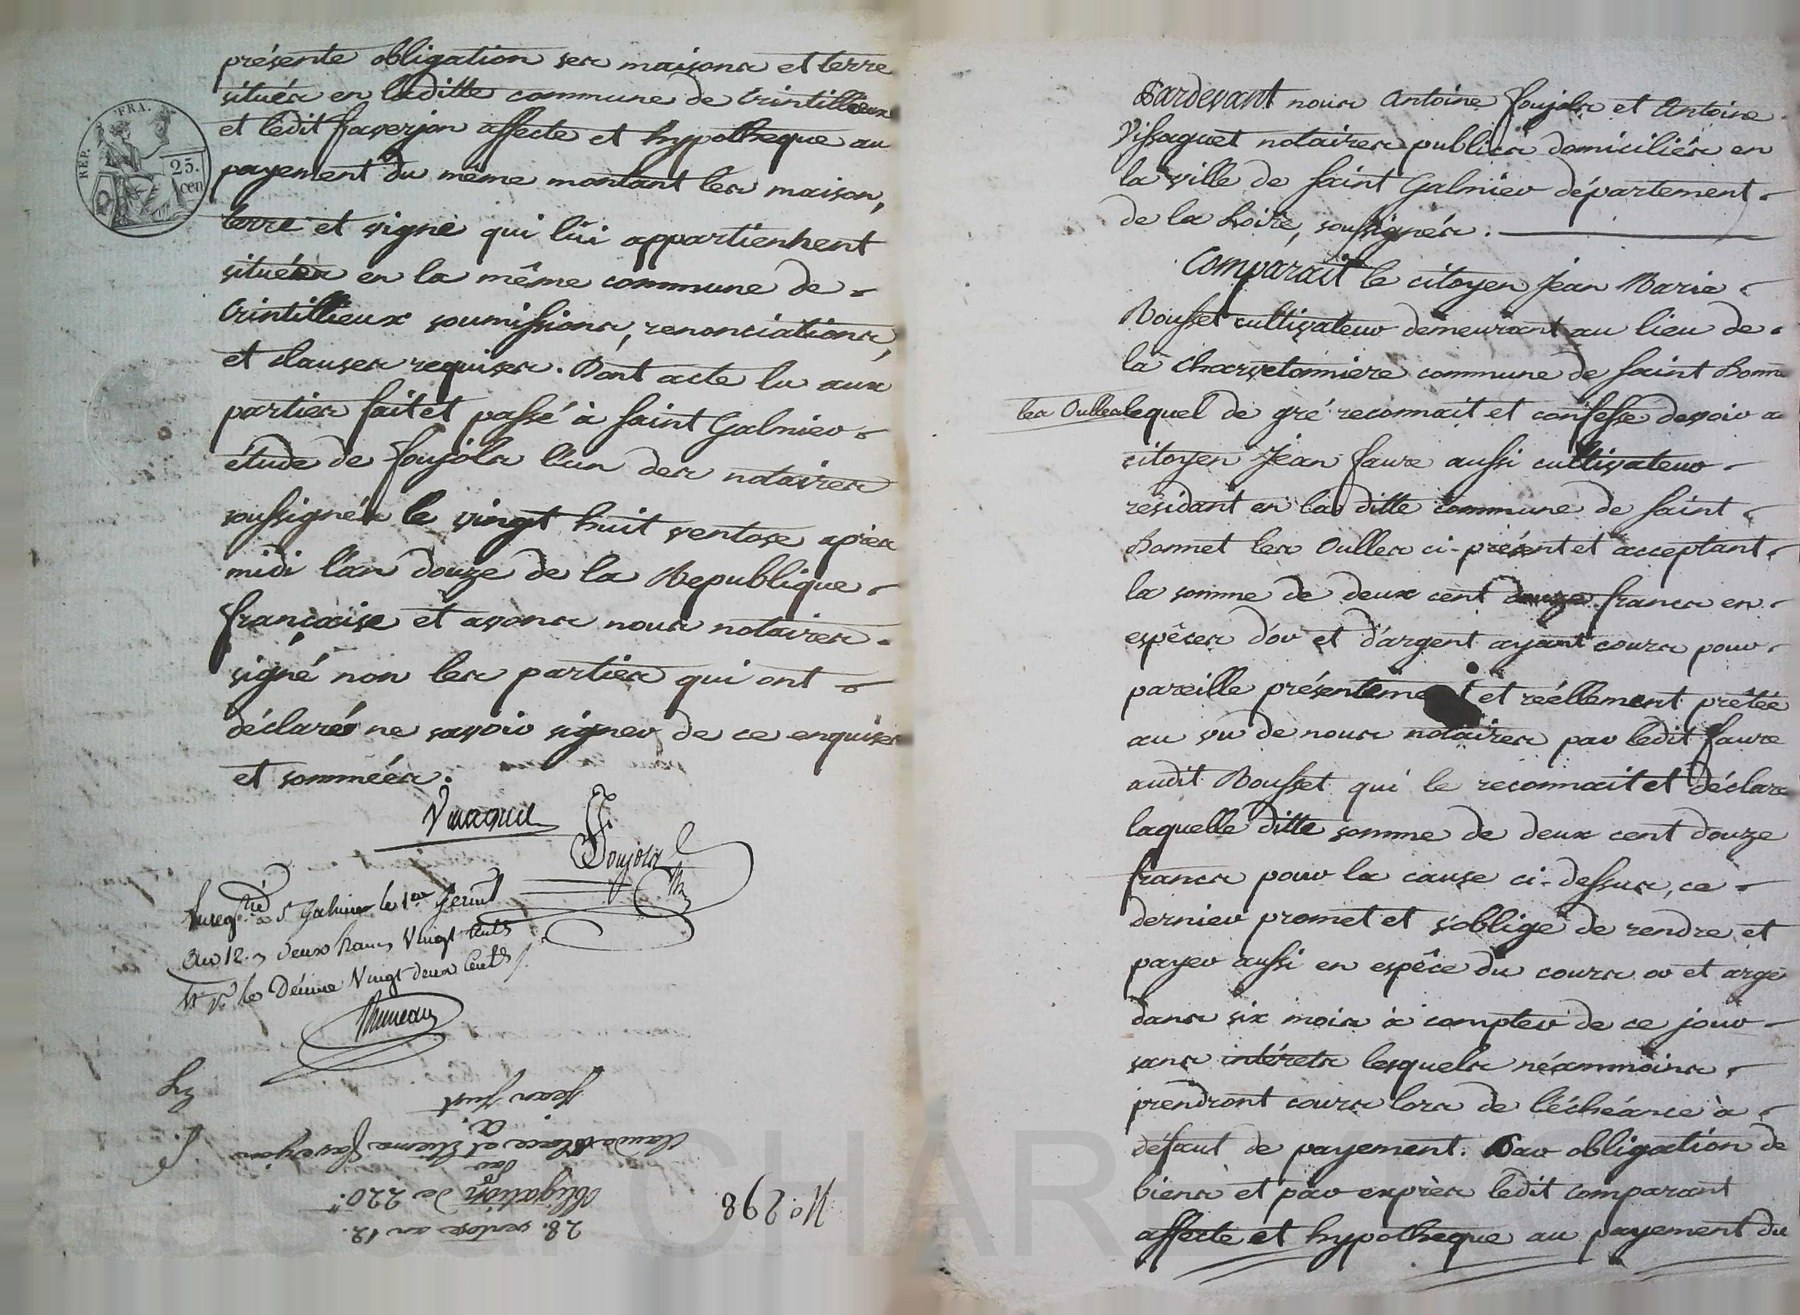 présente obligation ses maisons et terre
située en laditte commune de Crintillieux
et ledit faverjon affecte et hypotheque au
payement du même montant les maison,
terre et vigne qui lui appartienhent
situées en la même commune de
Crintillieux soumissions, renonciations,
et clauses requises. Dont acte lu aux
parties fait et passé à Saint Galmier
étude de foujols l'un des notaires
soussignés le vingt huit ventose après
midi l'an douze de la Republique
française et avons nous notaires
signé non les parties qui ont
déclarés ne savoir signer de ce enquises
et sommées.
Foujols
Enreg.tré à St Galmier le 1er Germl
an 12. deux francs vingt cents
le Décime Vingt deux Cent.
REP. FRA.
25. cen
Jean Just
à
Claude et Etienne faverjon
par
Obligation de 220.
28. ventose an 12.
No. 298
Pardevant nous Antoine foujols et Antoine
Vissaguet notaires publics domiciliés en
la ville de Saint Galmier département
de la Loire, soussignés.
Comparait le citoyen Jean Marie
Rousset cultivateur demeurant au lieu de
la Charvetonniere commune de Saint Bonnet
les Oulles lequel de gré reconnait et confesse devoir au
citoyen Jean faure aussi cultivateur
résidant en la ditte commune de Saint
Bonnet les Oulles ci-présent et acceptant
la somme de deux cent douze francs en
espêces d'or et d'argent ayant cours pour
pareille présentement et réellement prêtée
au vu de nous notaires par ledit faure
audit Rousset qui le reconnait et déclare
laquelle ditte somme de deux cent douze
francs pour la cause ci-dessus, ce
dernier promet et s'oblige de rendre et
payer aussi en espêce du cours or et arge
dans six mois à compter de ce jour
sans intérets lesquels néammoins
prendront cours lors de l'échéance à
défaut de payement. Par obligation de
biens et par exprès ledit comparant
affecte et hypotheque au payement du